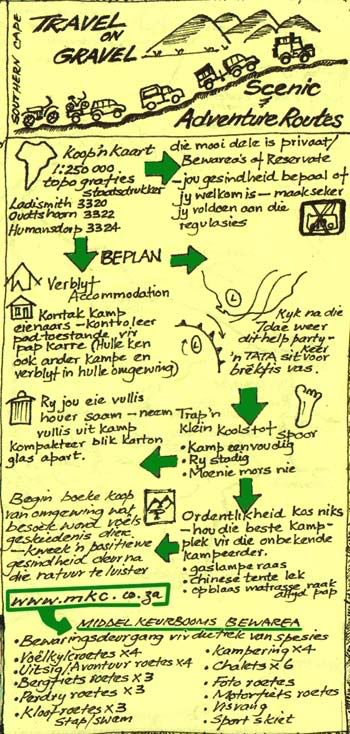 SOUTHERN CAPE
TRAVEL
ON
GRAVEL
Scenic
&
Adventure Routes
Koop 'n Kaart
1:250 000
topo grafies
staatsdrukker
Ladismith 3320
Oudtshoorn 3322
Humansdorp 3324
die mooi dele is privaat/
Bewarea's of Reservate
—jou gesindheid bepaal of
jy welkom is — maak seker
jy voldoen aan die
regulasies
BEPLAN
Verblyf
Accommodation
Kontak kamp
eienaars — kontroleer
pad toestande vir
pap karre (Hulle ken
ook ander kampe en
verblyf in hulle omgewing)
L
L
Kyk na die
7dae weer
dit help party-
keer
'n TATA sit voor
brekfis vas.
Ry jou eie vullis
houer saam — neem
vullis uit kamp
kompakteer blik karton
glas apart.
Trap 'n
Klein Koolstof spoor
• Kamp eenvoudig
• Ry stadig
• Moenie mors nie
Begin boeke koop
van omgewing wat
besoek word voels
geskiedenis diere
—kweek 'n positiewe
gesindheid deur na
die natuur te luister
Ordentlikheid kos niks
—hou die beste kamp-
plek vir die onbekende
kampeerder.
• gaslampe raas
• Chinese tente lek
• opblaas matrasse raak
altyd pap
www.mkc.co.za
MIDDEL KEURBOOMS BEWAREA
• Bewaringsdeurgang vir die trek van spesies
• Voëlkykroetes x4
• Uitsig/Avontuur roetes x4
• Bergfiets roetes x3
• Perdry roetes x3
• Kloof roetes x3
Stap/swem
• Kampering x4
• Chalets x6
• Foto roetes
• Motorfiets roetes
• Visvang
• Sport skiet